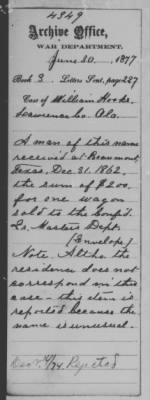 4349
Archive Office,
WAR DEPARTMENT,
June 20, 1877
Book 3. Letters Sent, page 227
Case of William Hooke.
Lawrence Co. Ala.
A man of this name
received at Beaumont,
Texas, Dec. 31. 1862,
the sum of $200.
for one wagon
sold to the Confed.
Qr. Masters Dept.
[Envelope]
Note. Altho. the
residence does not
correspond in this
case - this item is
reported because the
name is unusual.
Rejected